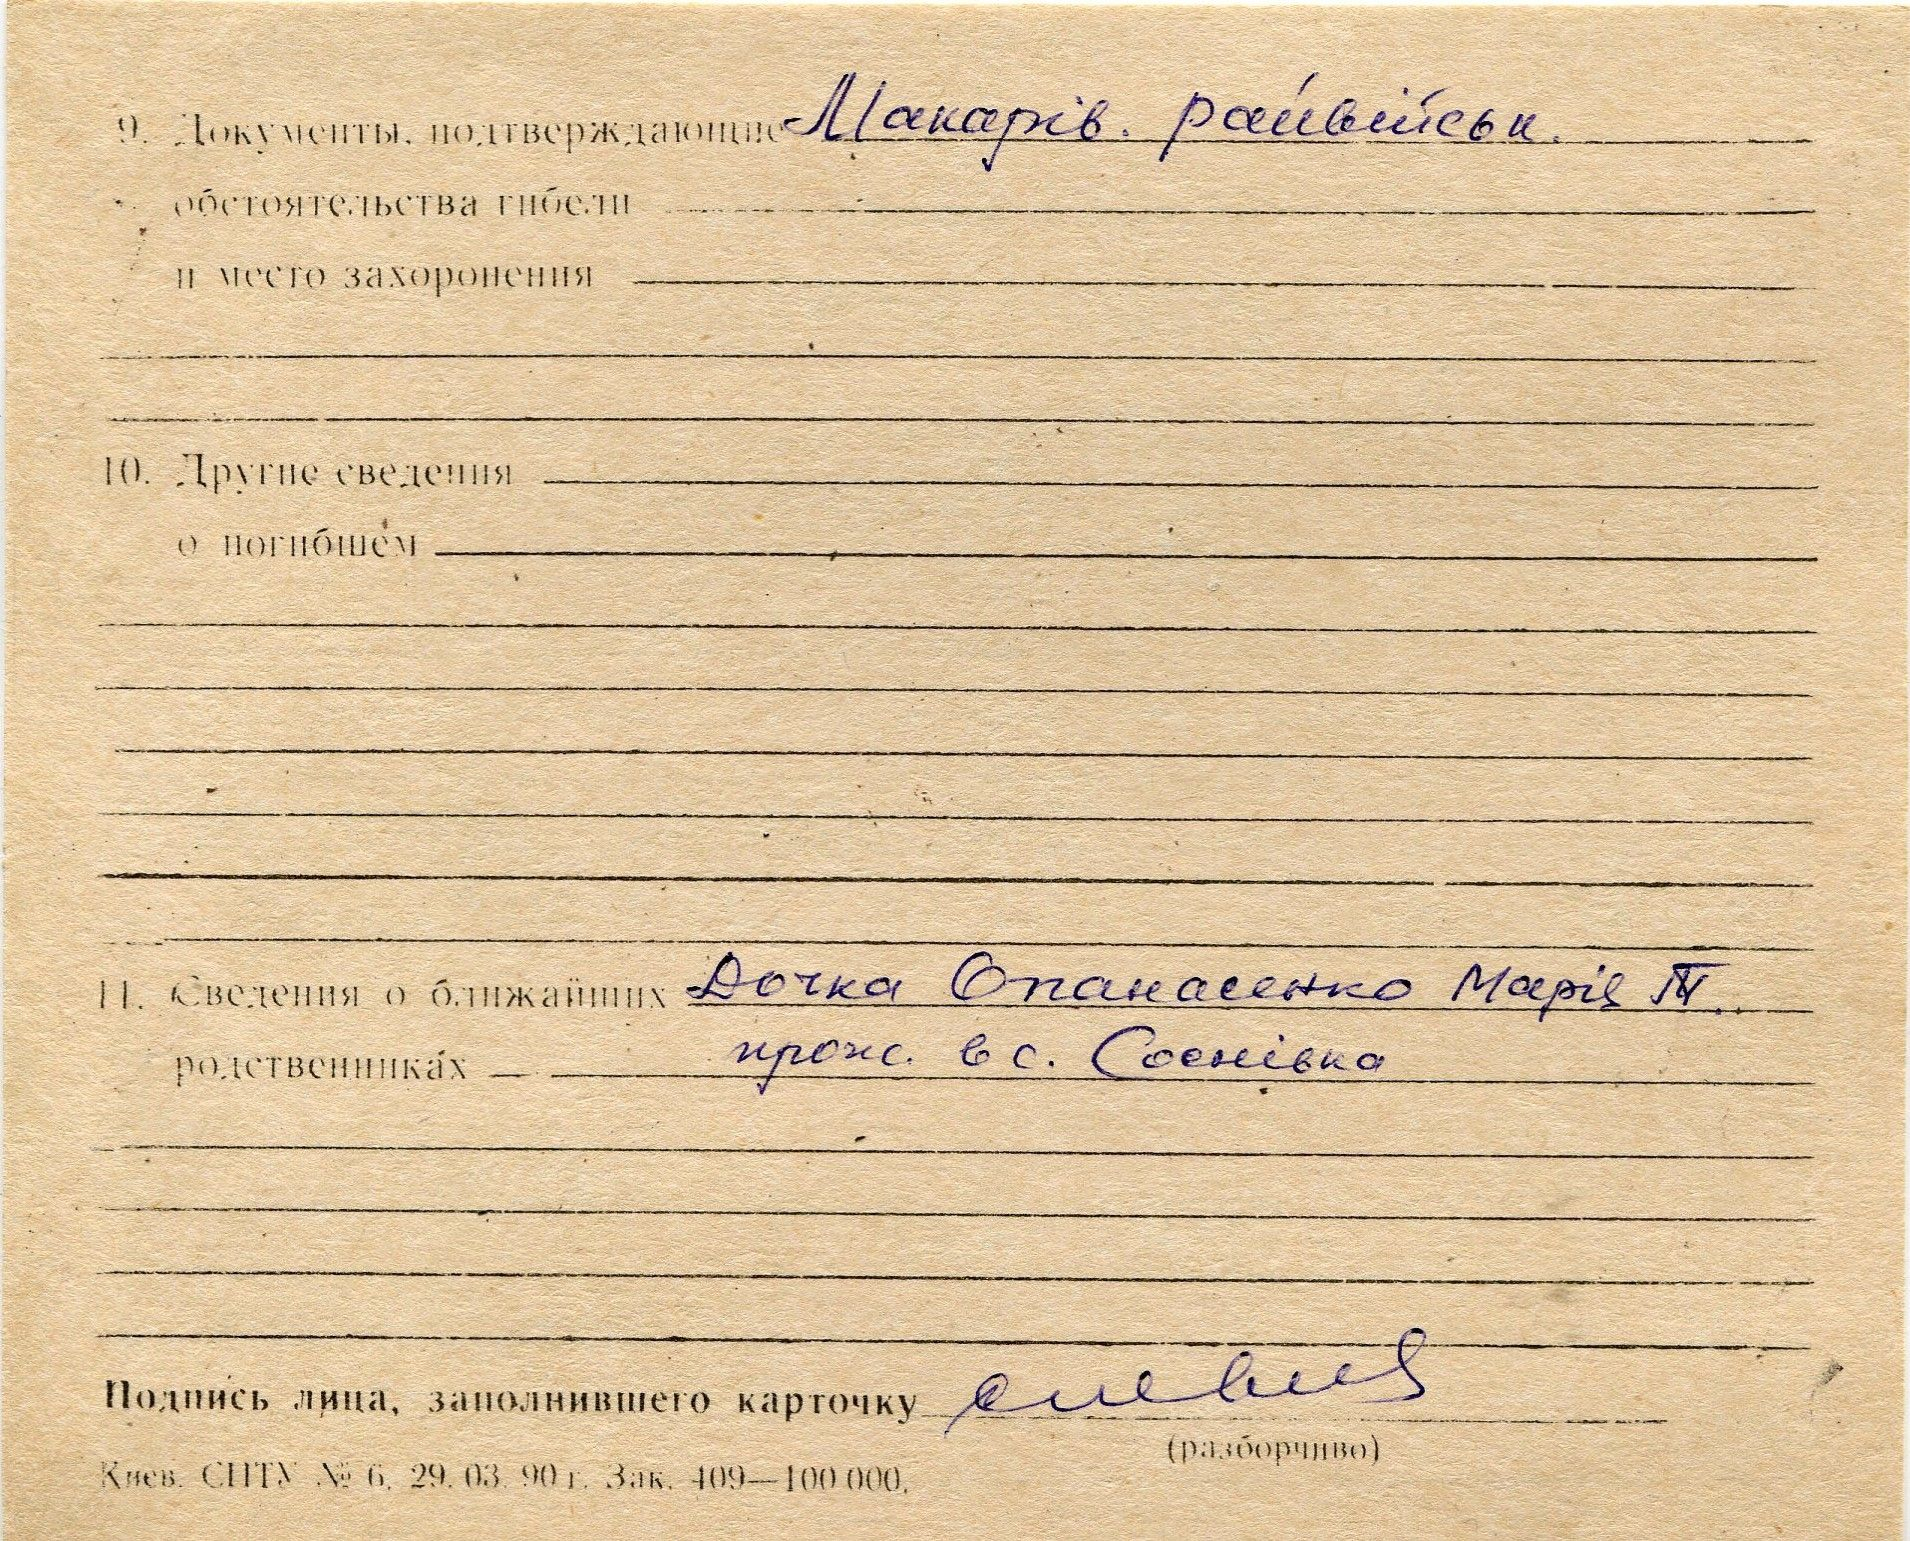 9. Документы, подтверждающие Макарів. райвійськ.
обстоятельства гибели
и место захоронения
10. Другие сведения
о погибшем
11. Сведения о ближайших Дочка Опанасенко Марія Т.
родственниках прож. в с. Соснівка
Подпись лица, заполнившего карточку
(разборчиво)
Киев. СПТУ № 6. 29. 03. 90 г. Зак. 409—100 000.